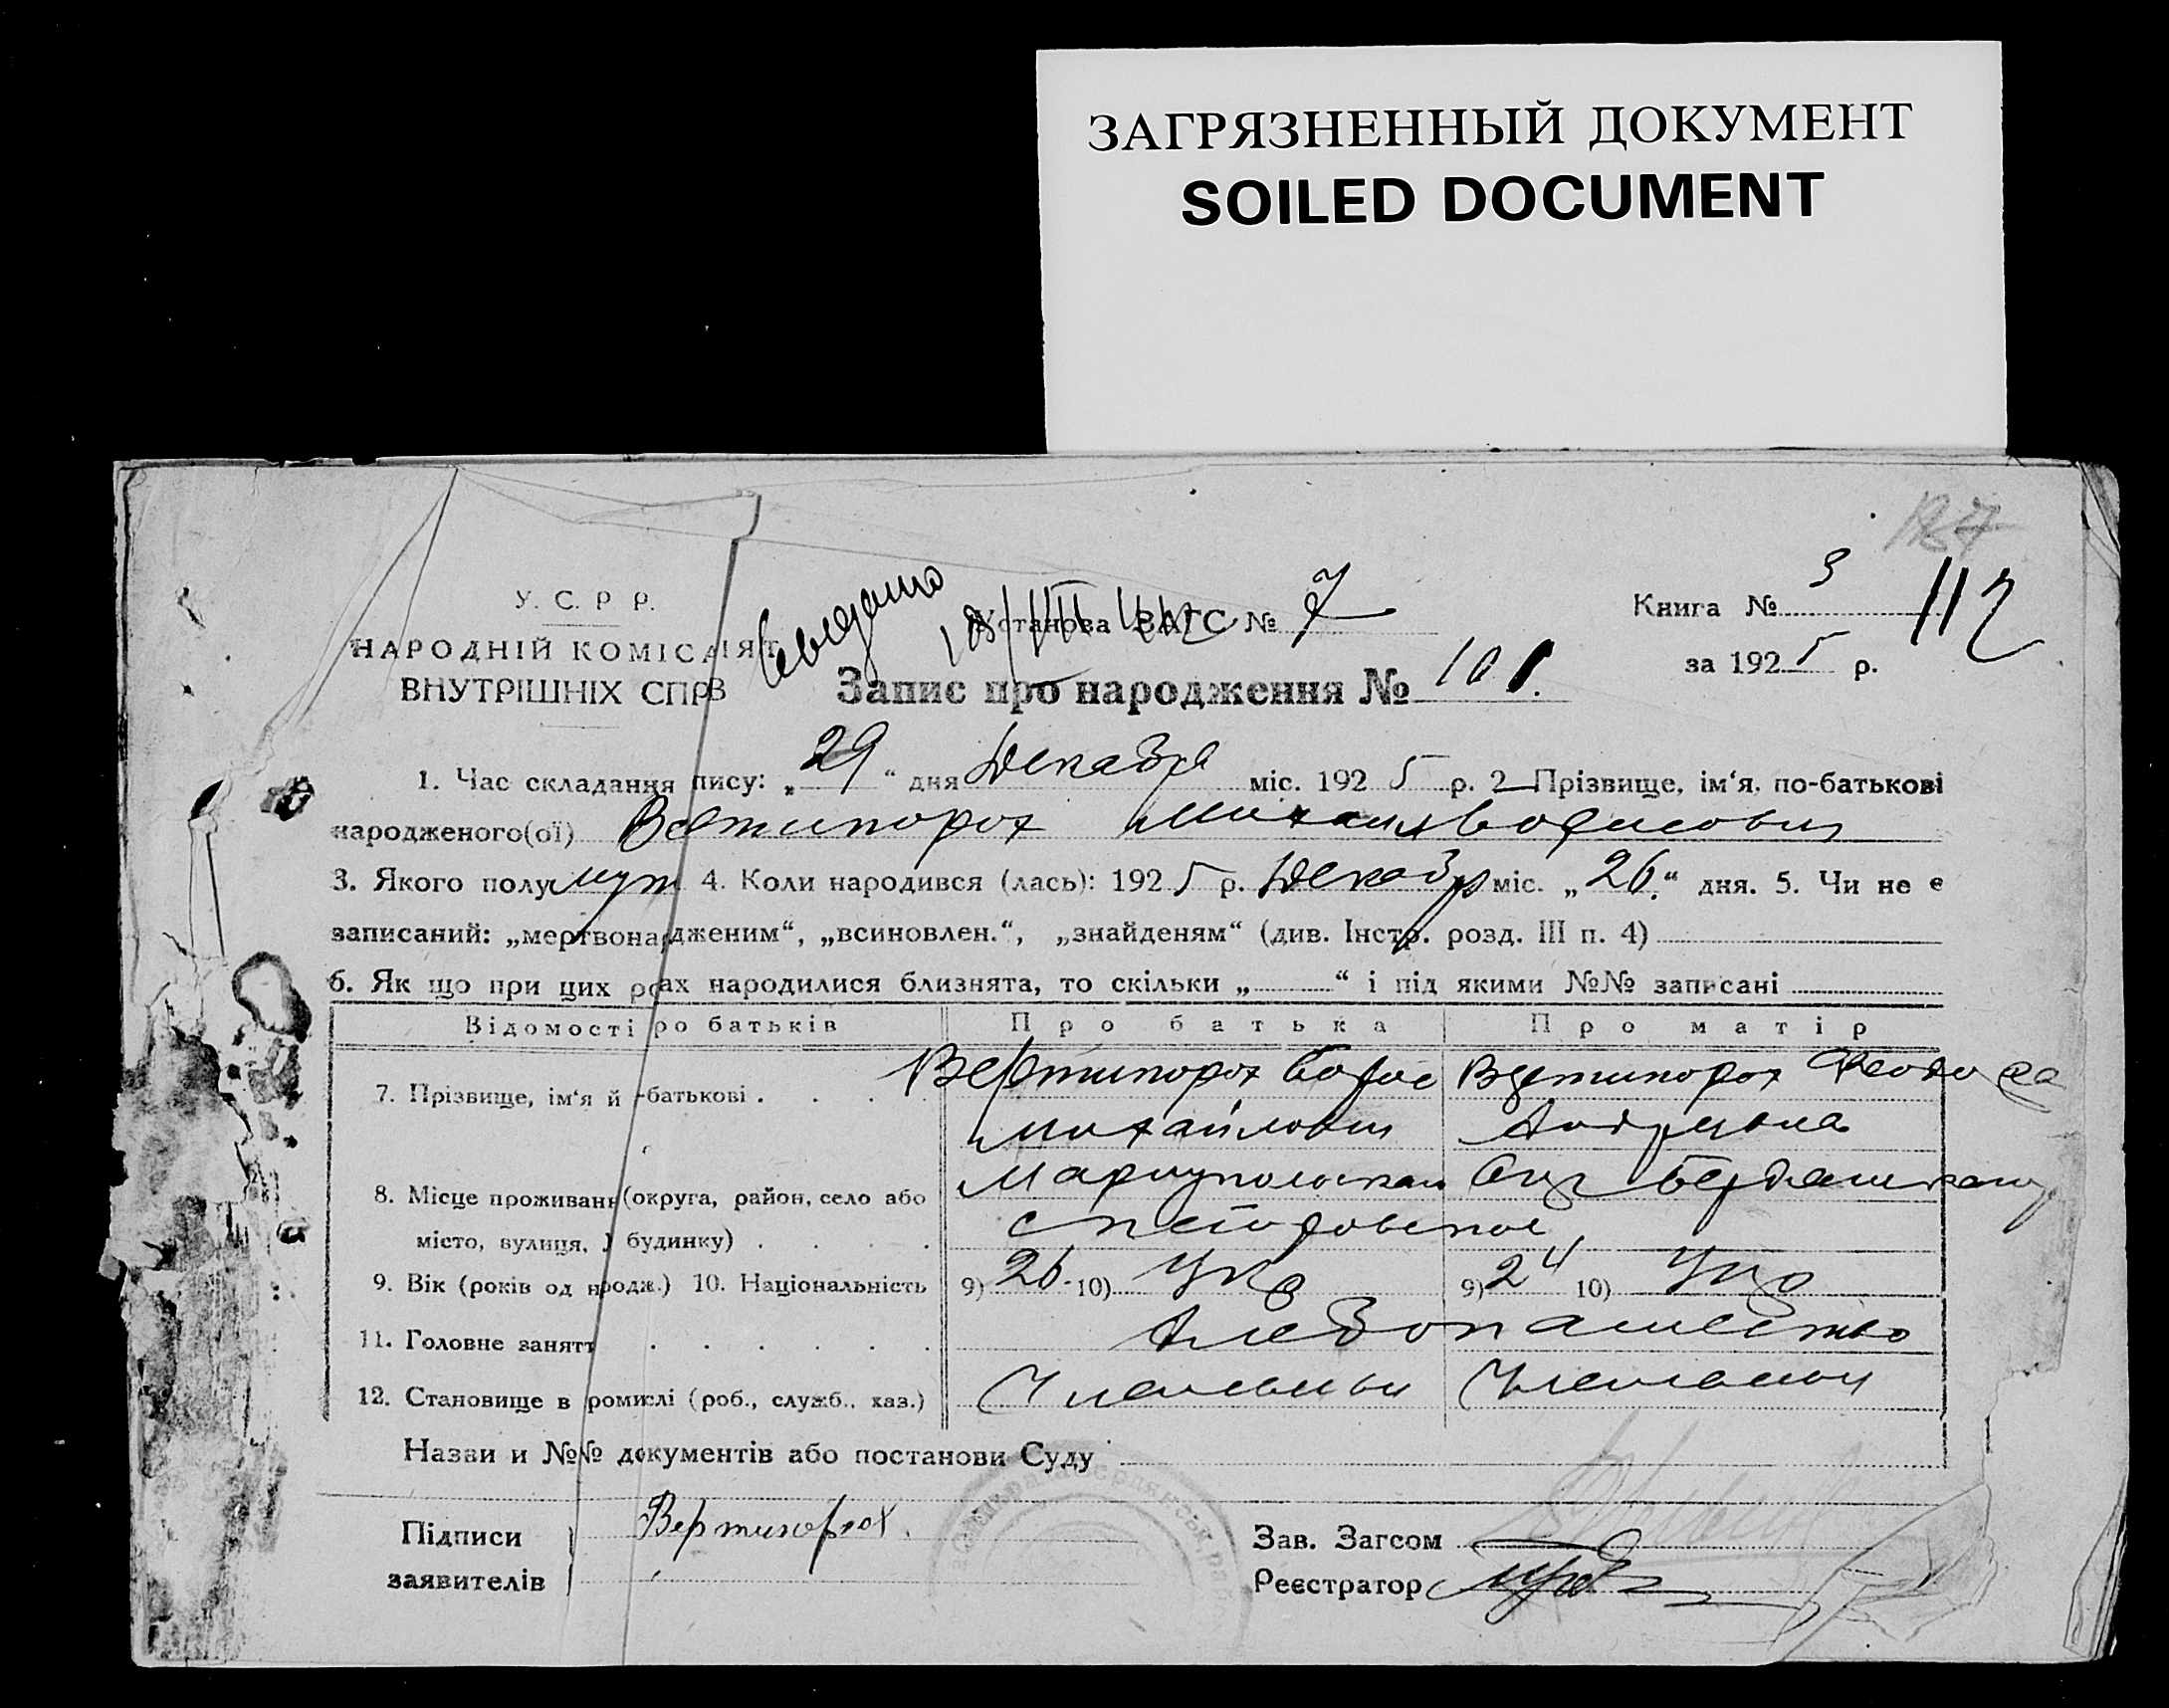 ЗАГРЯЗНЕННЫЙ ДОКУМЕНТ
SOILED DOCUMENT
У. С. Р Р.
НАРОДНІЙ КОМІСАІЯТ
ВНУТРІШНІХ СПРВ
Установа ЗАГС № 7
Книга № 3
112
за 1925 р.
Запис про народження № 101.
1. Час складання пису: „29“ дня Декабря міс. 1925 р. 2 Прізвище, ім‘я, по-батькові
народженого(ої) Вертипорох Михаил Борисович
3. Якого полу муж 4. Коли народився (лась): 1925 р. Декабр міс. „26.“ дня. 5. Чи не є
записаний: „мертвонардженим“, „всиновлен.“, „знайденям“ (див. Інстр. розд. III п. 4)
6. Як що при цих рoах народилися близнята, то скільки „ “ і під якими №№ записані
Відомості ро батьків Про батька Про матір
7. Прізвище, ім‘я й -батькові . Вертипорох Борис Вертипорох
Михайлович Андреевна
8. Місце проживань (округа, район, село або Мариупольская Окр Бердянская
місто, вулиця, будинку) . с Петровское
9. Вік (років од нродж.) 10. Національність 9) 26. 10) Укр 9) 24 10) Укр
11. Головне занятт Хлебопашество
12. Становище в ромислі (роб., служб., хаз.)
Назви и №№ документів або постанови Суду
Підписи Вертипорох.
заявителів
Зав. Загсом
Реєстратор